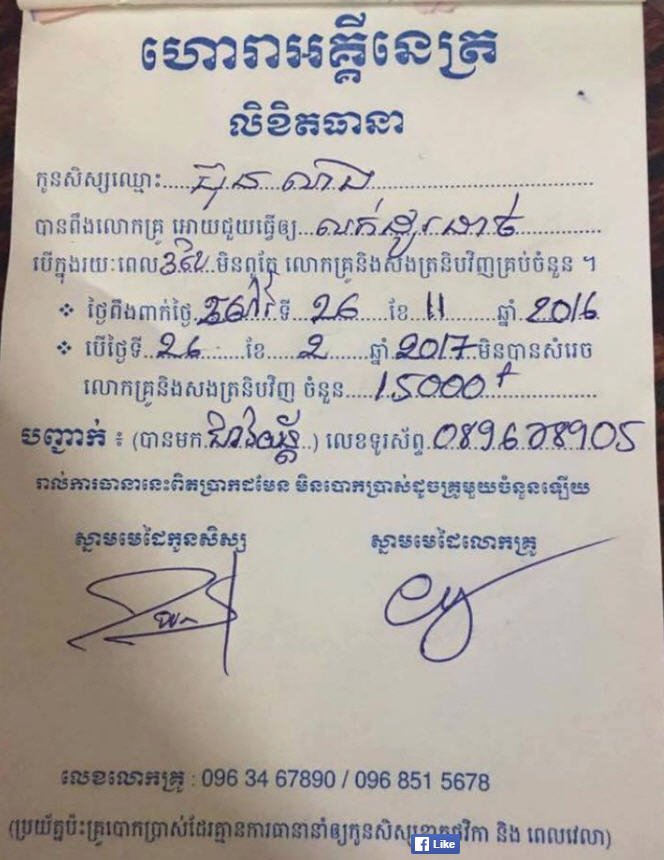 ហោរាអគ្គីនេត្រ
លិខិតធានា
កូនសិស្សឈ្មោះ
បានពឹងលោកគ្រូ អោយជួយធ្វើឲ្យ លក់ដូរដាច់
បើក្នុងរយៈពេល មិនពូកែ លោកគ្រូនិងសងត្រនិបវិញគ្រប់ចំនួន ។
❖ ថ្ងៃពឹងពាក់ថ្ងៃ សៅរ៍ ទី 26 ខែ 11 ឆ្នាំ 2016
❖ បើថ្ងៃទី 26 ខែ 2 ឆ្នាំ 2017 មិនបានសំរេច
លោកគ្រូនិងសងត្រនិបវិញ ចំនួន 15000
បញ្ជាក់ ៖ (បានមក ) លេខទូរស័ព្ទ
រាល់ការធានានេះពិតប្រាកដមែន មិនបោកប្រាស់ដូចគ្រូមួយចំនួនឡើយ
ស្នាមមេដៃកូនសិស្ស ស្នាមមេដៃលោកគ្រូ
លេខលោកគ្រូ : 096 34 67890 / 096 851 5678
(ប្រយ័ត្នប៉ះគ្រូបោកប្រាស់ដែរគ្មានការធានានាំឲ្យកូនសិស្សខាតថវិកា និង ពេលវេលា)
Like